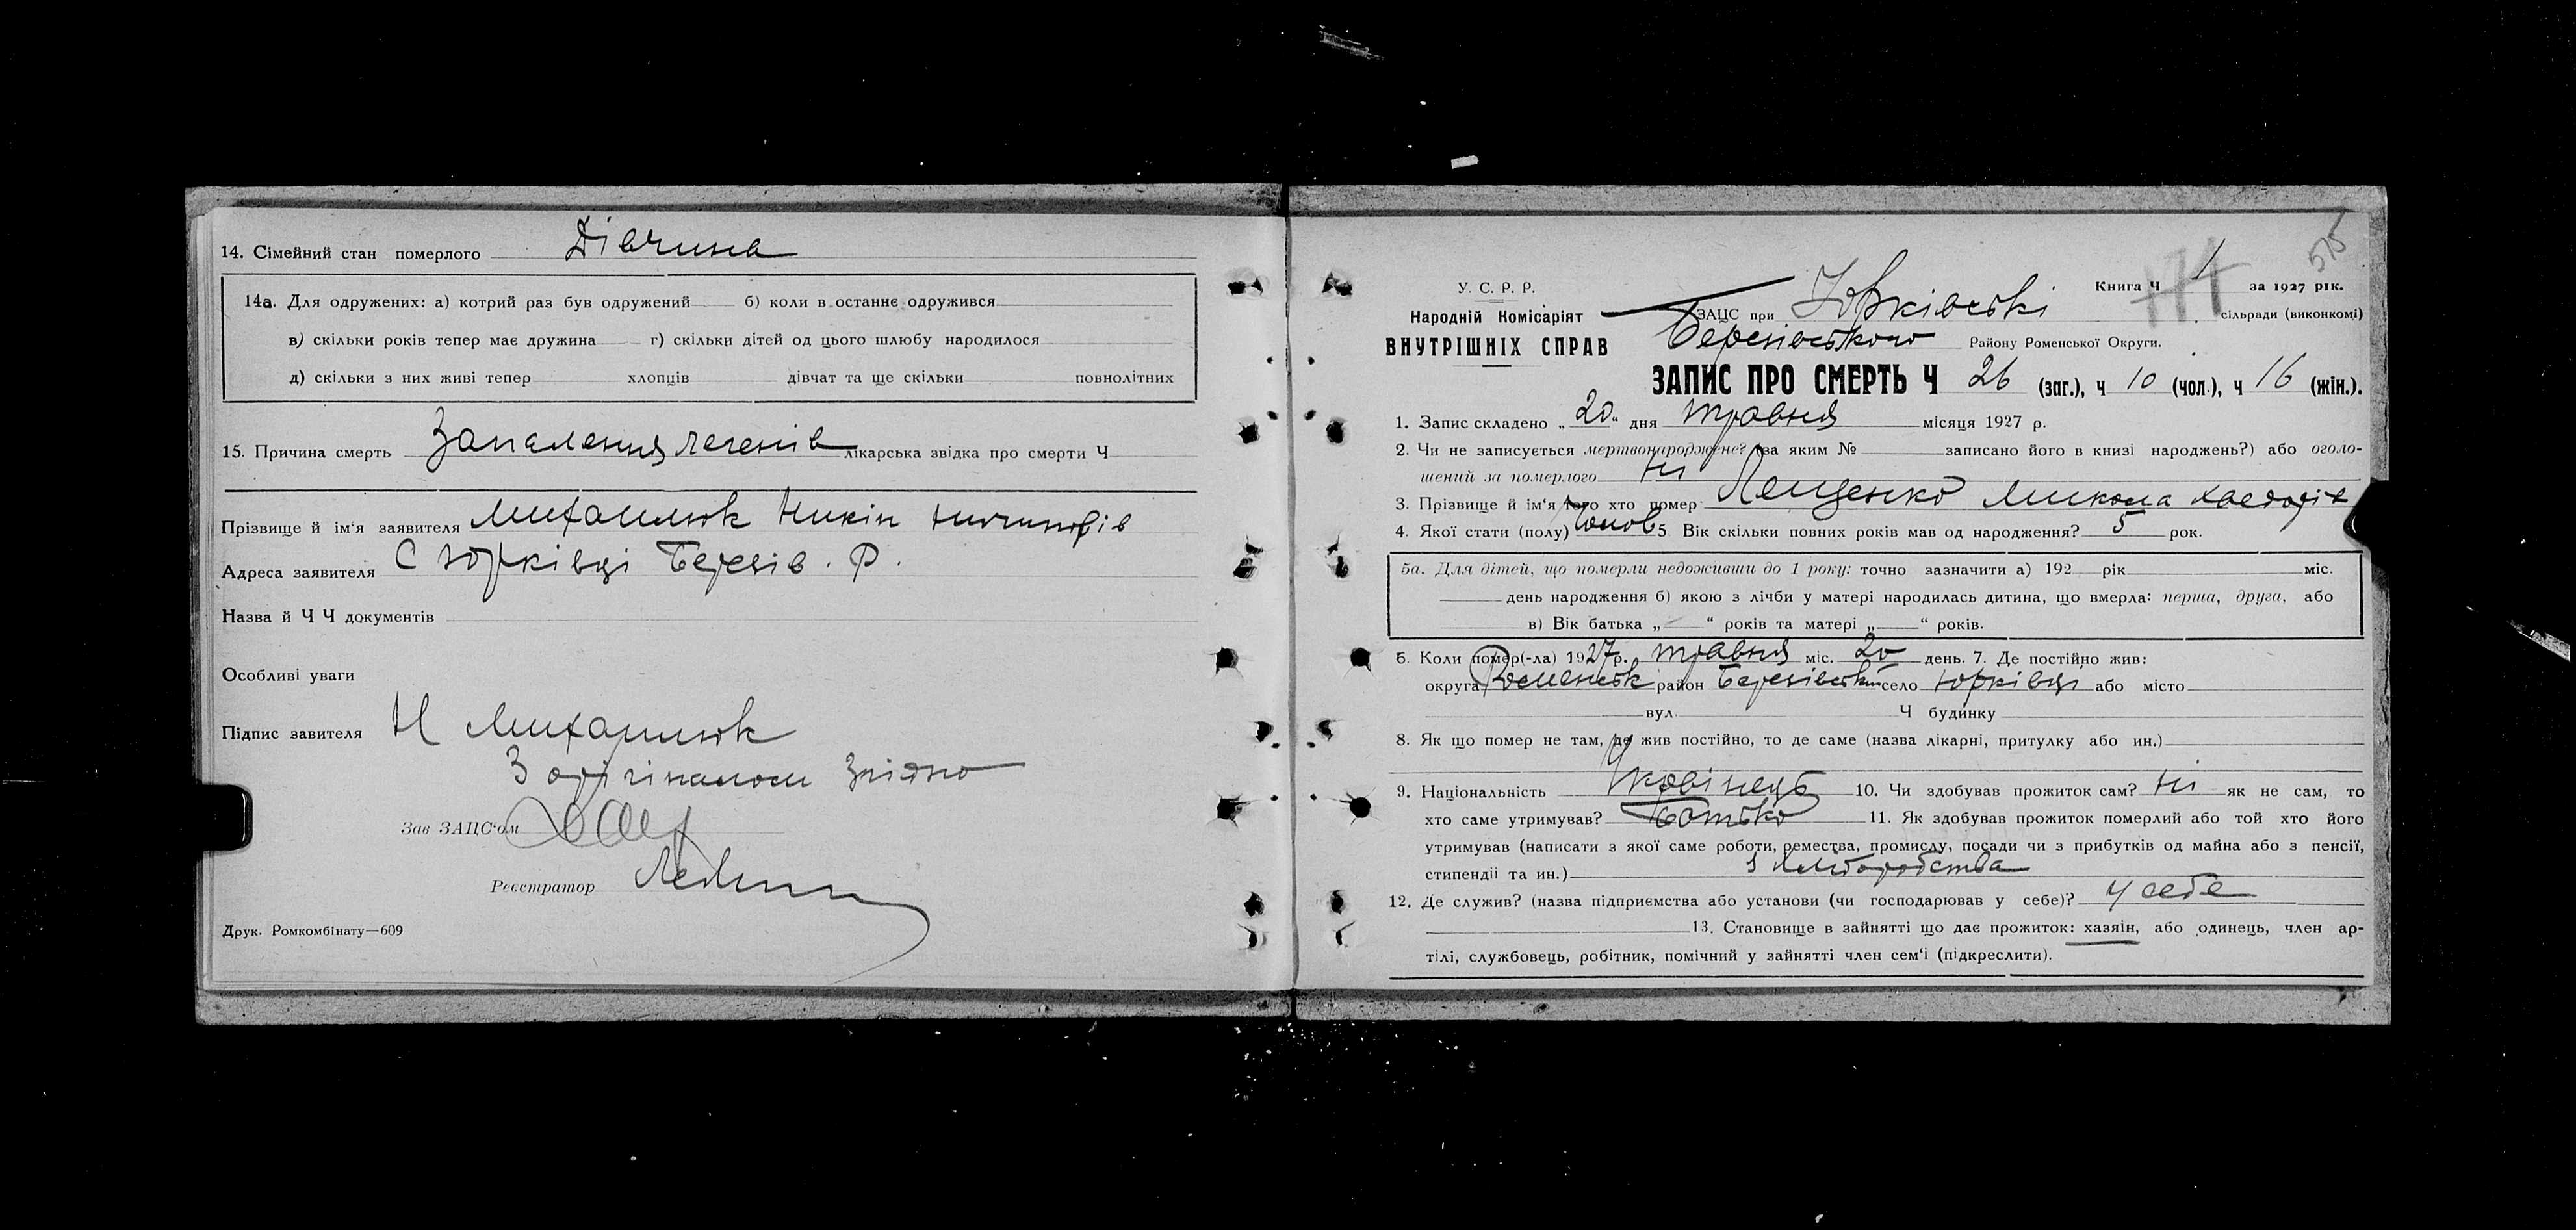 14. Сімейний стан померлого Дівчина
14а. Для одружених: а) котрий раз був одружений б) коли в останнє одружився
в) скільки років тепер має дружина г) скільки дітей од цього шлюбу народилося
д) скільки з них живі тепер хлопців дівчат та ще скільки повнолітних
15. Причина смерть Запалення легенів лікарська звідка про смерти Ч
Прізвище й ім'я заявителя Михайлюк Никін
Адреса заявителя С Юрківці Березів. Р.
Назва й Ч Ч документів
Особливі уваги
Підпис завителя Н Михайлюк
З орігіналом Згідно
Зав ЗАЦС'ом
Реєстратор
Друк. Ромкомбінату—609
575
У. С. Р. Р.
Книга Ч 1 за 1927 рік.
Народній Комісаріят ЗАЦС при Юрківські сільради (виконкомі)
ВНУТРІШНІХ СПРАВ Березівського Району Роменської Округи.
ЗАПИС ПРО СМЕРТЬ Ч 26 (заг.), ч 10 (чол.), ч 16 (жін.).
1. Запис складено „20" дня травня місяця 1927 р.
2. Чи не записується мертвонароджене? (за яким № записано його в книзі народжень?) або оголо-
шений за померлого Ні
3. Прізвище й ім'я того хто помер Лещенко Микола
4. Якої стати (полу) Чолов 5 Вік скільки повних років мав од народження? 5 рок.
5а. Для дітей, що померли недоживши до 1 року: точно зазначити а) 192 рік міс.
день народження б) якою з лічби у матері народилась дитина, що вмерла: перша, друга, або
в) Вік батька „ “ років та матері „ “ років.
6. Коли помер(-ла) 1927р. травня міс. 20 день. 7. Де постійно жив:
округа Роменськ район Березівськ село Юрківці або місто
вул. Ч будинку
8. Як що помер не там, де жив постійно, то де саме (назва лікарні, притулку або ин.)
9. Національність Українець 10. Чи здобував прожиток сам? Ні як не сам, то
хто саме утримував? Батько 11. Як здобував прожиток померлий або той хто його
утримував (написати з якої саме роботи, ремества, промислу, посади чи з прибутків од майна або з пенсії,
стипендії та ин.) з хліборобства
12. Де служив? (назва підприємства або установи (чи господарював у себе)? у себе
13. Становище в зайнятті що дає прожиток: хазяїн, або одинець, член ар-
тілі, службовець, робітник, помічний у зайнятті член сем'ї (підкреслити).